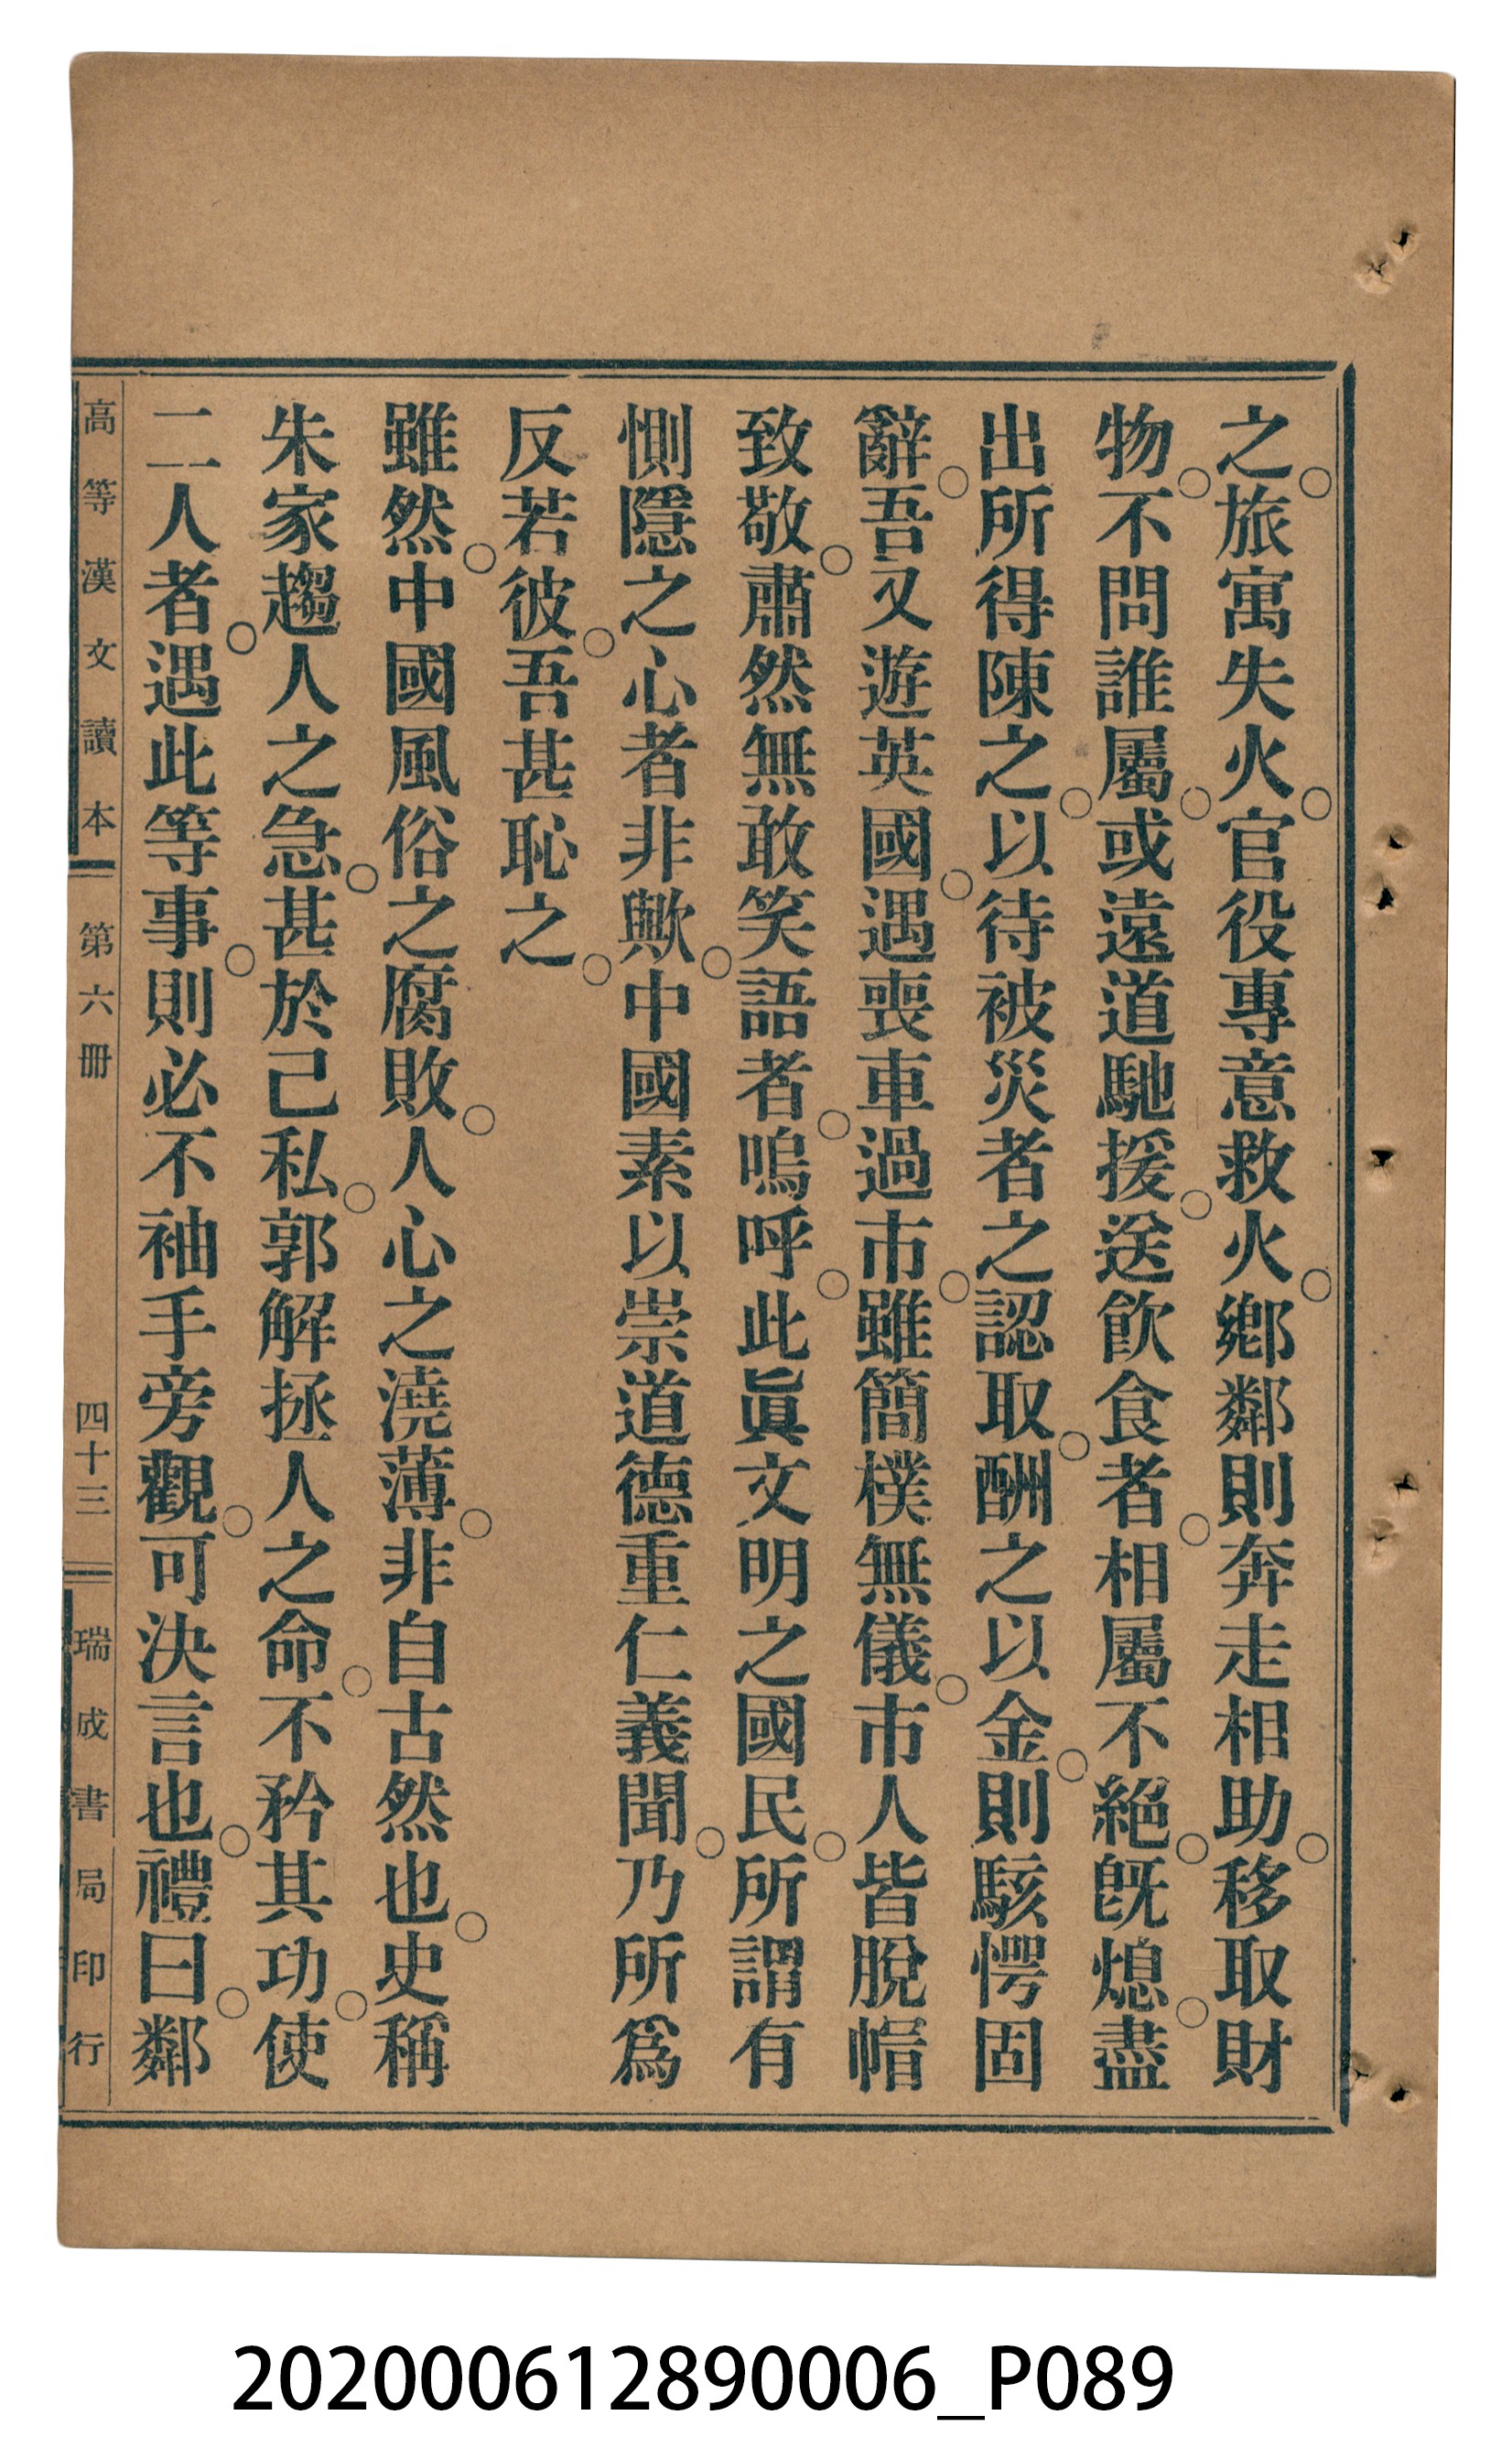 之。旅寓失火。官役專意救火。鄉鄰則奔走相助。移取財
物。不問誰屬。或遠道馳援。送飮食者。相屬不絕。旣熄。盡
出所得陳之。以待被災者之認取。酬之以金。則駭愕固
辭。吾又遊英國。遇喪車過市。雖簡樸無儀。市人皆脫帽
致敬。肅然無敢笑語者。嗚呼。此眞文明之國民。所謂有
惻隱之心者非歟。中國素以崇道德重仁義聞。乃所爲
反若彼。吾甚恥之。
雖然。中國風俗之腐敗。人心之澆薄。非自古然也。史稱
朱家趨人之急。甚於己私。郭解拯人之命。不矜其功。使
二人者。遇此等事。則必不袖手旁觀。可決言也。禮曰。鄰
高等漢文讀本 第六冊 四十三 瑞成書局印行
202000612890006_P089